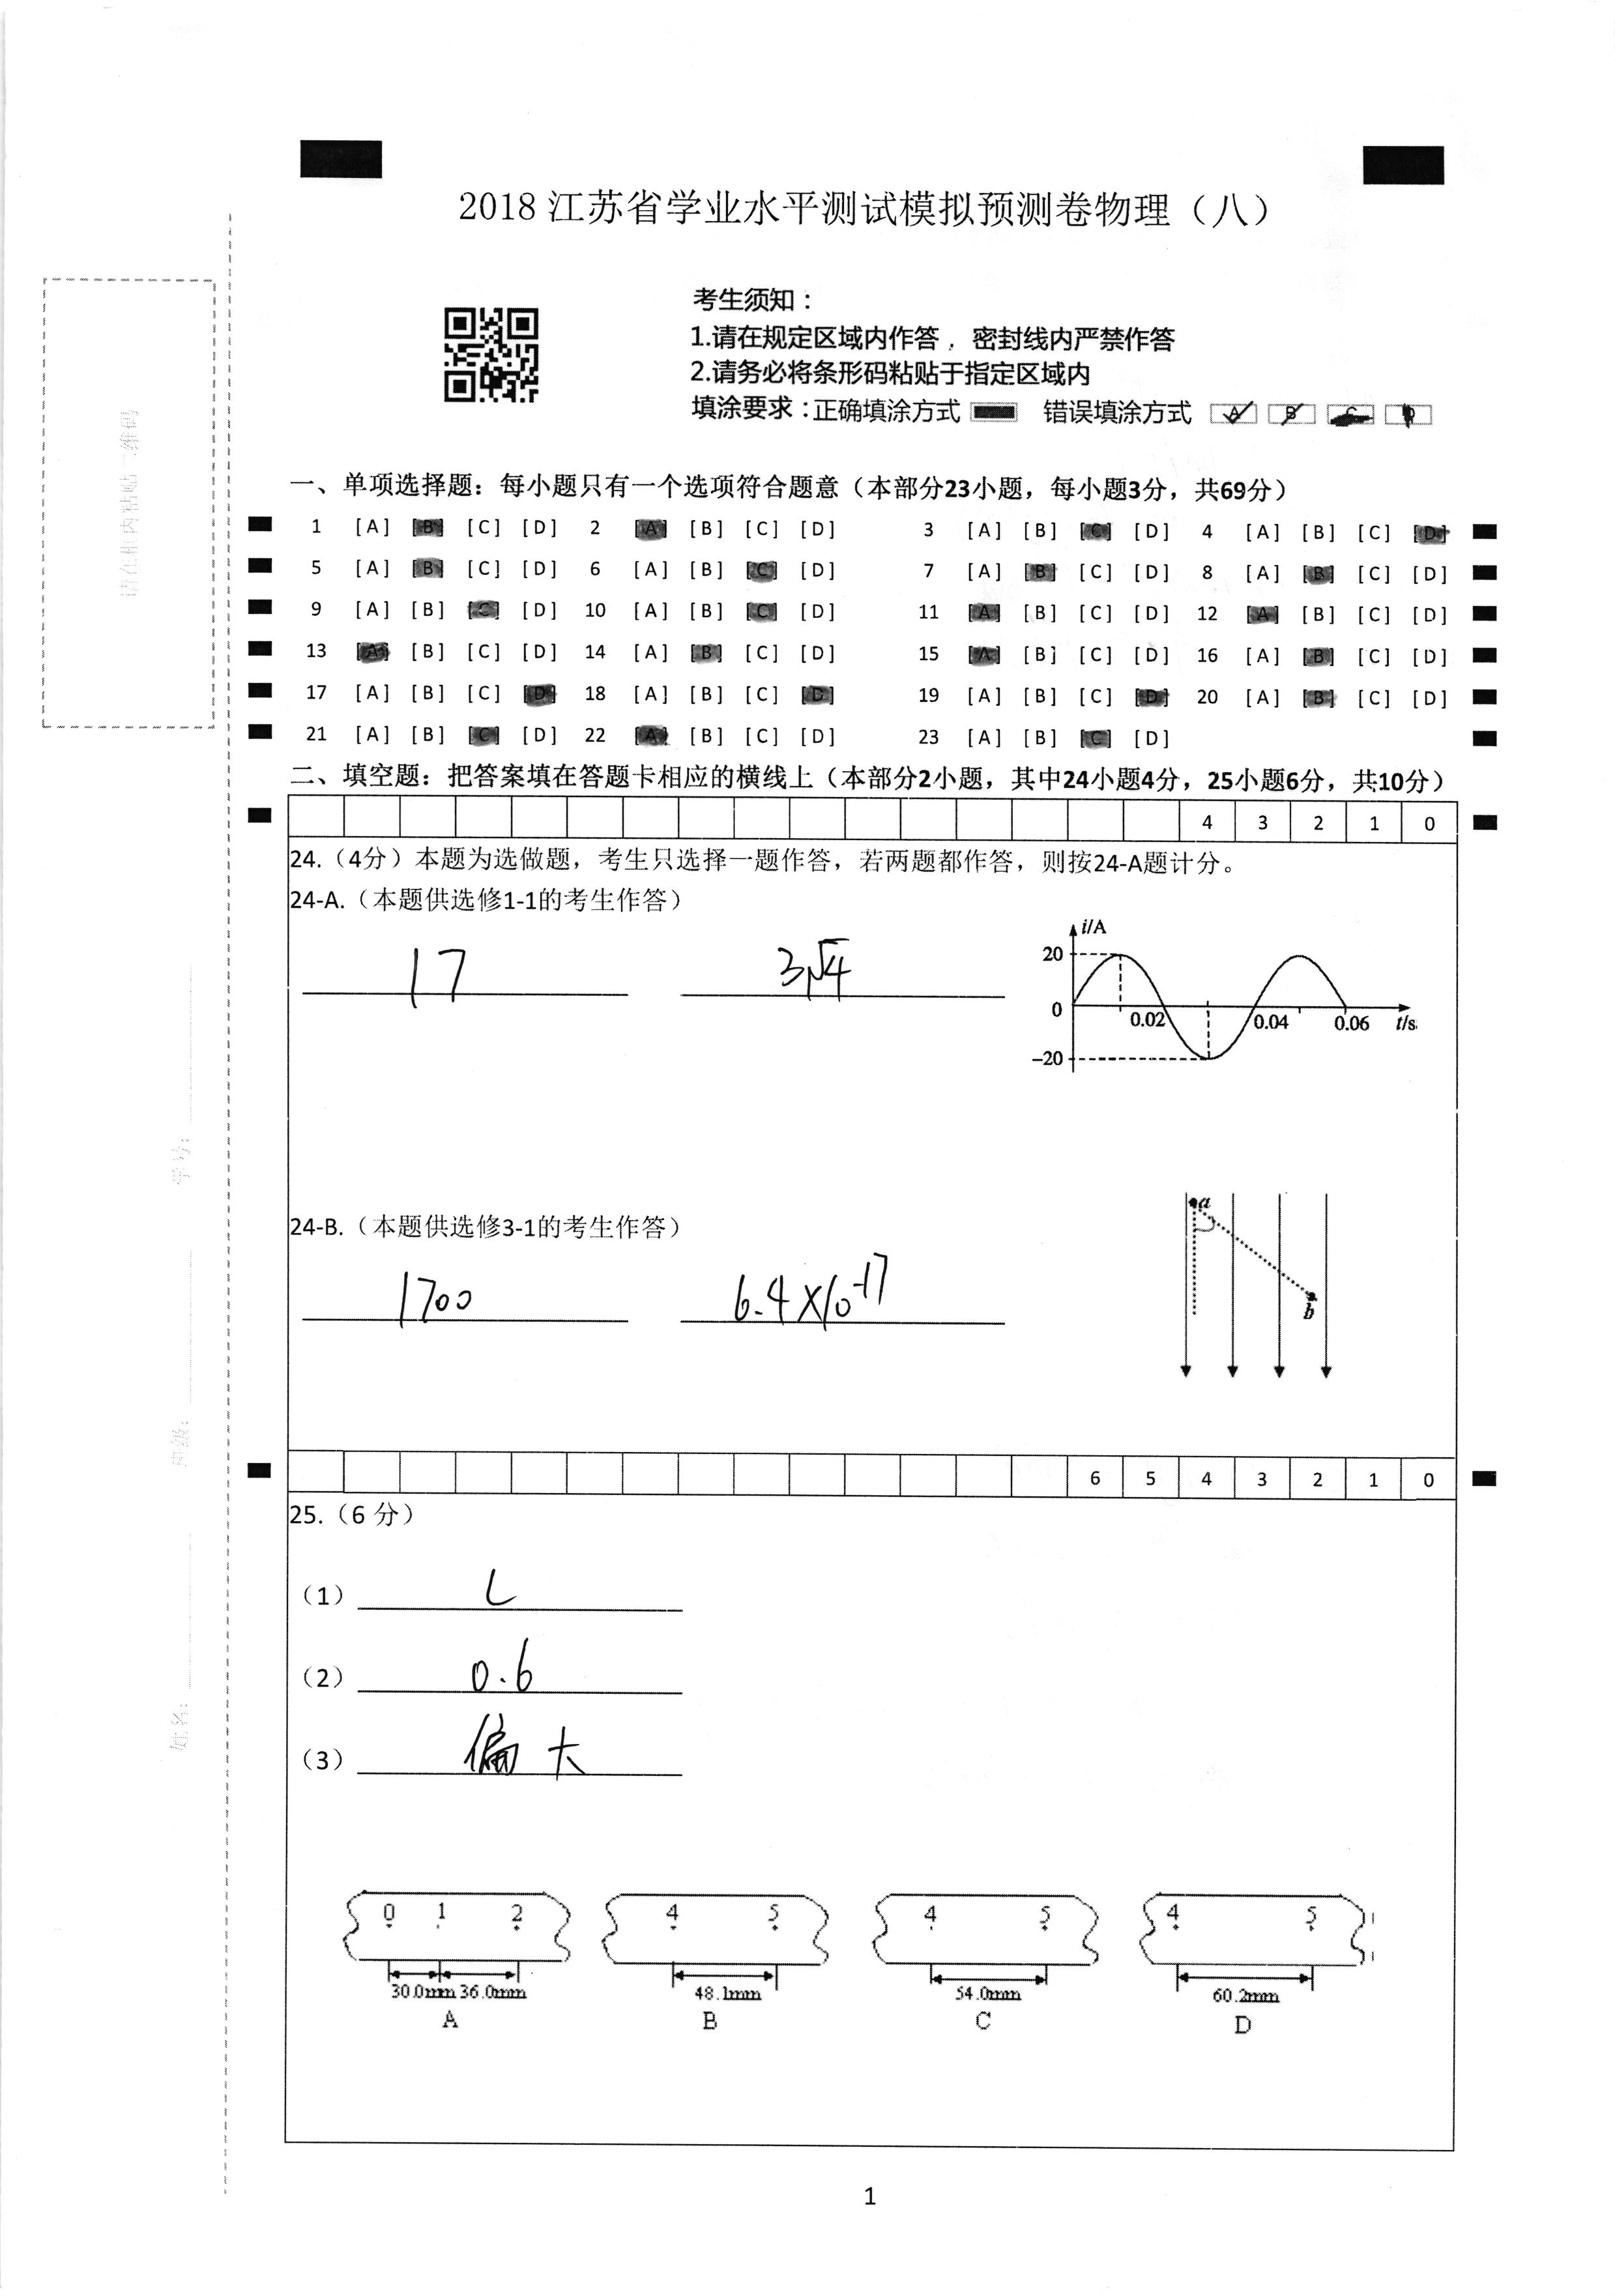 2018江苏省学业水平测试模拟预测卷物理（八）
考生须知：
1.请在规定区域内作答，密封线内严禁作答
2.请务必将条形码粘贴于指定区域内
填涂要求：正确填涂方式 错误填涂方式 A B C D
一、单项选择题：每小题只有一个选项符合题意（本部分23小题，每小题3分，共69分）
1 [A] [B] [C] [D] 2 [A] [B] [C] [D] 3 [A] [B] [C] [D] 4 [A] [B] [C] [D]
5 [A] [B] [C] [D] 6 [A] [B] [C] [D] 7 [A] [B] [C] [D] 8 [A] [B] [C] [D]
9 [A] [B] [C] [D] 10 [A] [B] [C] [D] 11 [A] [B] [C] [D] 12 [A] [B] [C] [D]
13 [A] [B] [C] [D] 14 [A] [B] [C] [D] 15 [A] [B] [C] [D] 16 [A] [B] [C] [D]
17 [A] [B] [C] [D] 18 [A] [B] [C] [D] 19 [A] [B] [C] [D] 20 [A] [B] [C] [D]
21 [A] [B] [C] [D] 22 [A] [B] [C] [D] 23 [A] [B] [C] [D]
二、填空题：把答案填在答题卡相应的横线上（本部分2小题，其中24小题4分，25小题6分，共10分）
4 3 2 1 0
24.（4分）本题为选做题，考生只选择一题作答，若两题都作答，则按24-A题计分。
24-A.（本题供选修1-1的考生作答）
17 3√4
i/A
20
0 0.02 0.04 0.06 t/s
-20
24-B.（本题供选修3-1的考生作答）
1700 6.4×10^-17
a
b
6 5 4 3 2 1 0
25.（6分）
（1） L
（2） 0.6
（3） 偏大
0 1 2 4 5 4 5 4 5
30.0mm 36.0mm 48.1mm 54.0mm 60.2mm
A B C D
请在框内粘贴二维码
学号：
班级：
姓名：
1